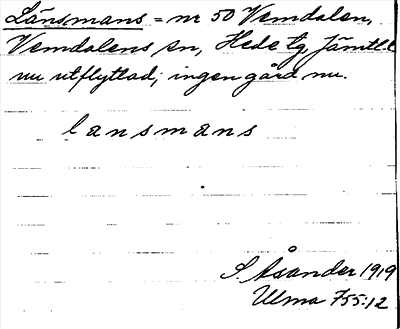 Länsmans = nr 50 Vemdalen,
Vemdalens sn, Hede tg, Jämtl. l
nu utflyttad; ingen gård nu.
lansmans
S. Åsander 1919
Ulma 755:12